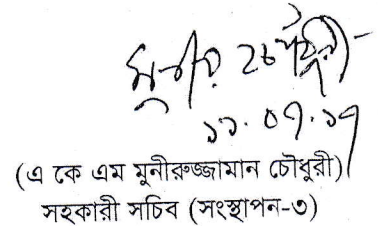 ১১.০৭.১৭
(এ কে এম মুনীরুজ্জামান চৌধুরী)
সহকারী সচিব (সংস্থাপন-৩)